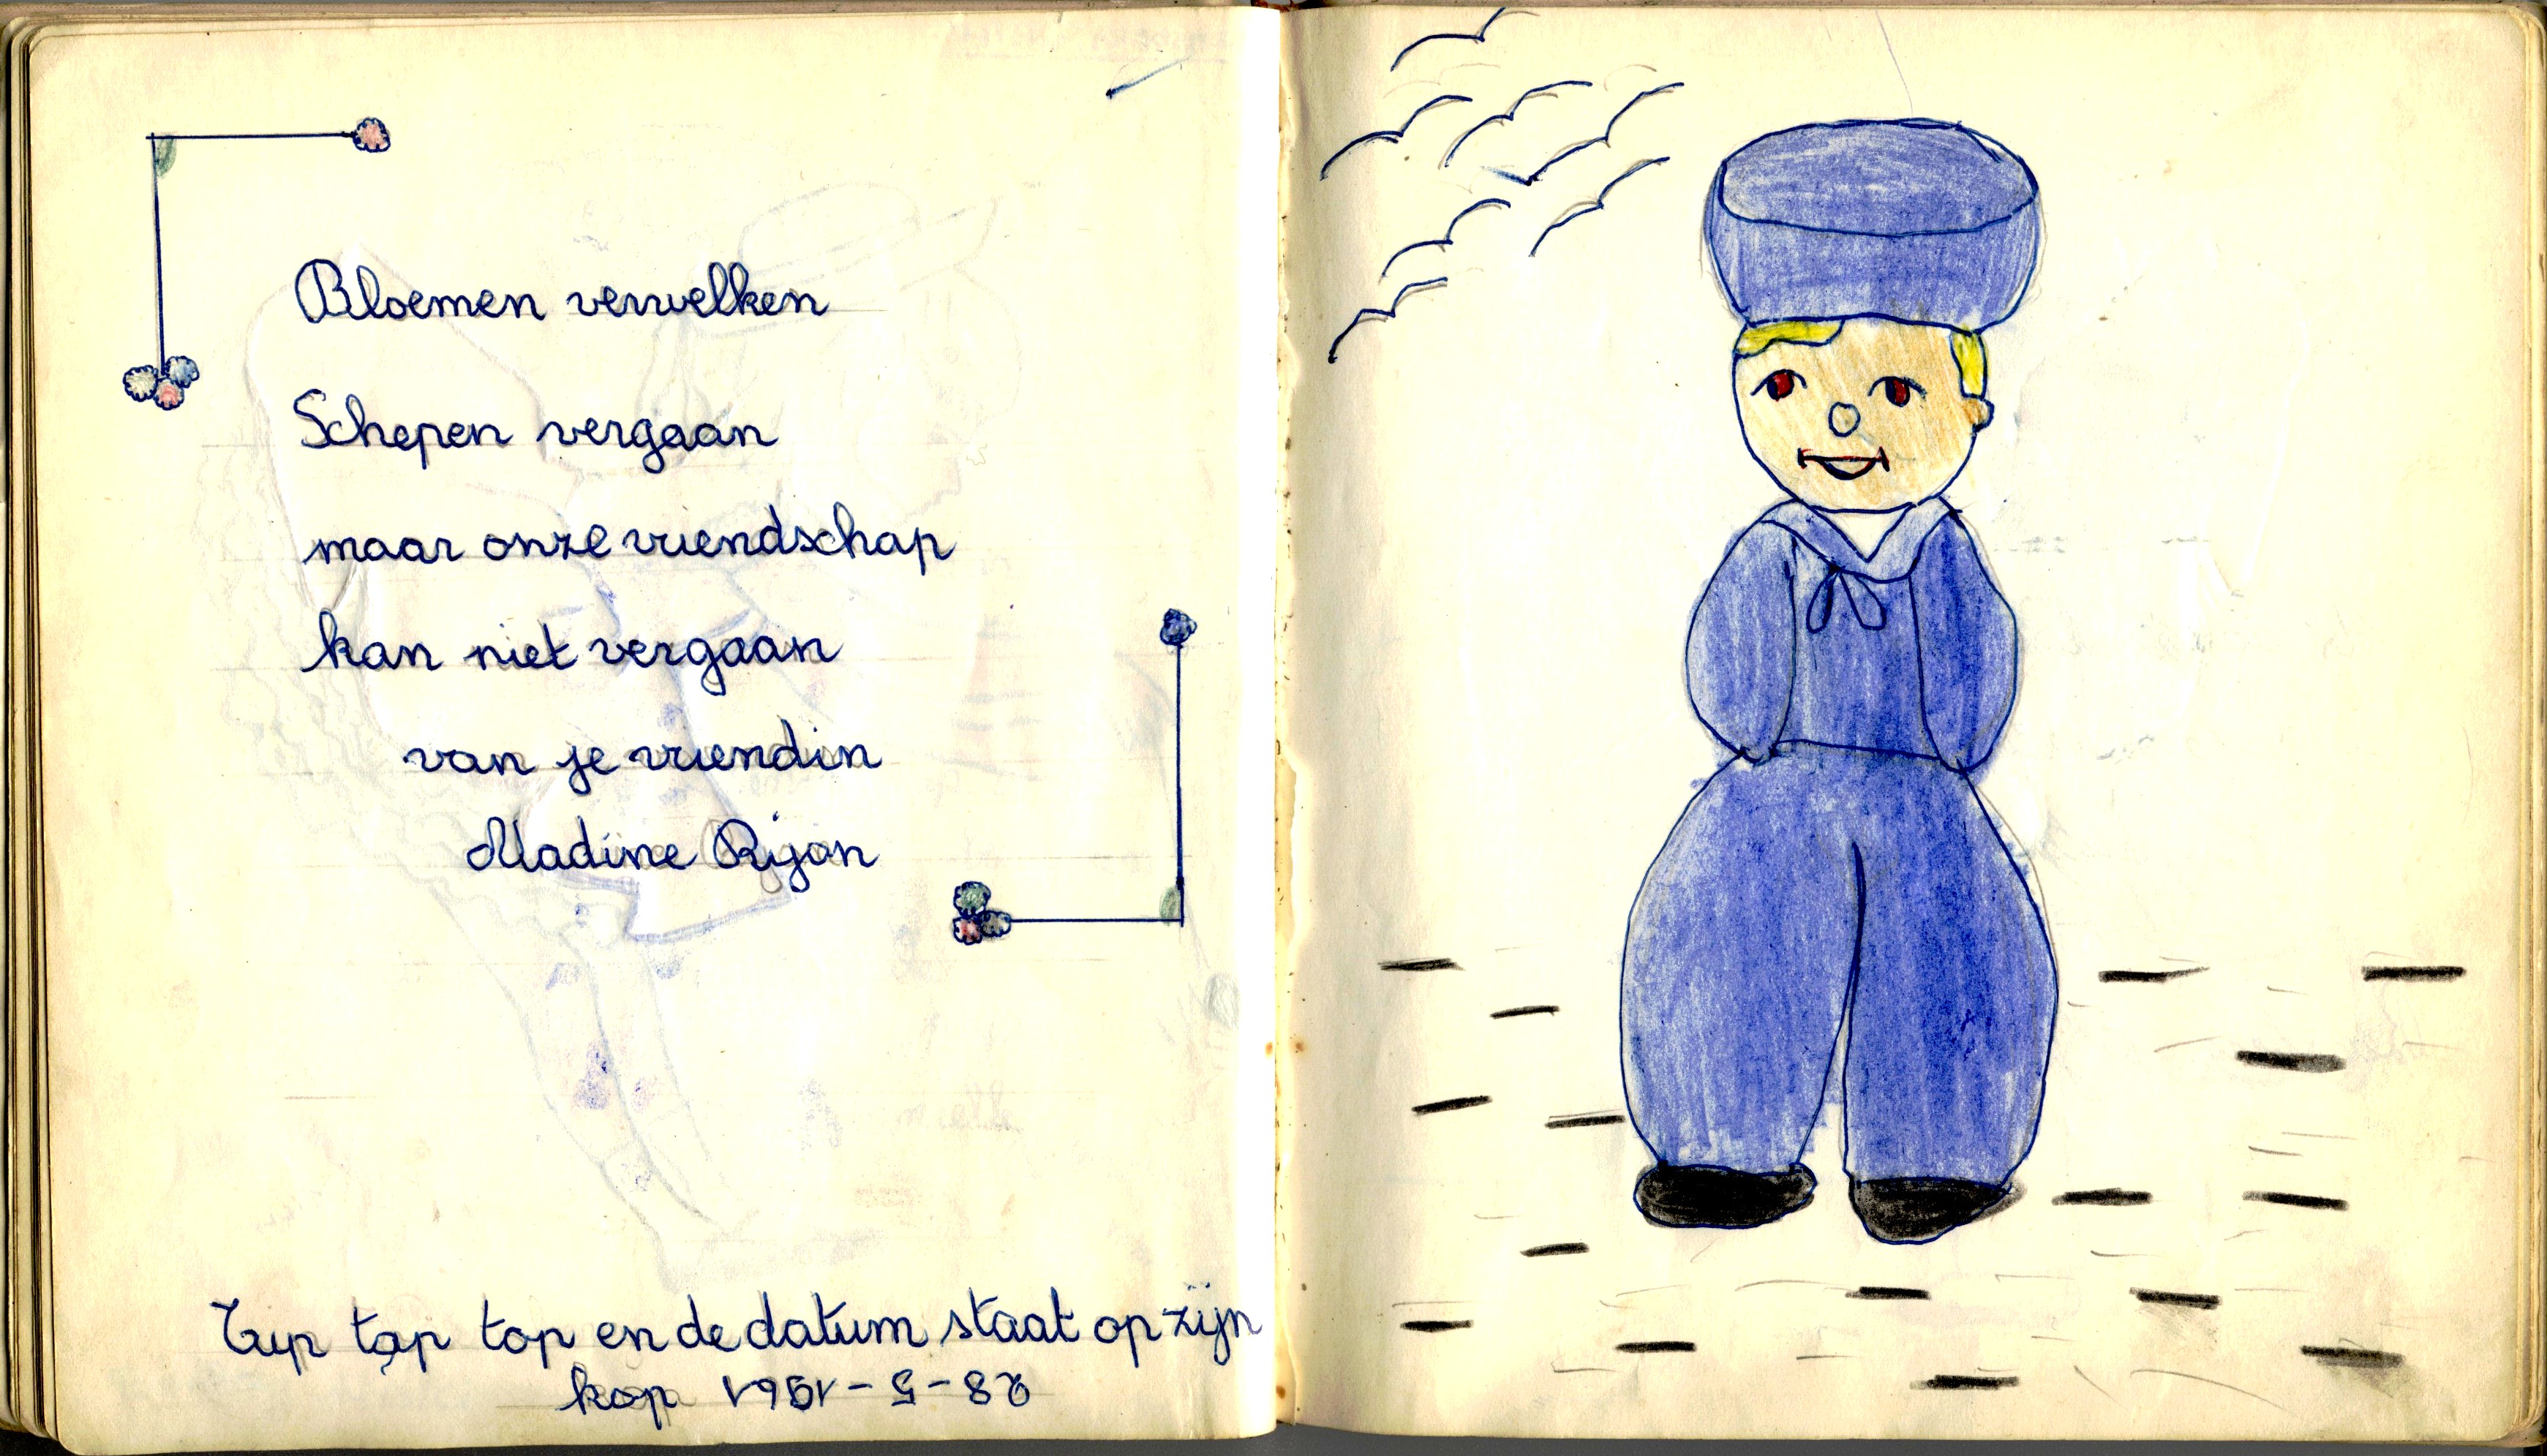 Bloemen verwelken
Schepen vergaan
maar onze vriendschap
kan niet vergaan
van je vriendin
Nadine Rijan
Tip tap top en de datum staat op zijn
kop 28-5-1961